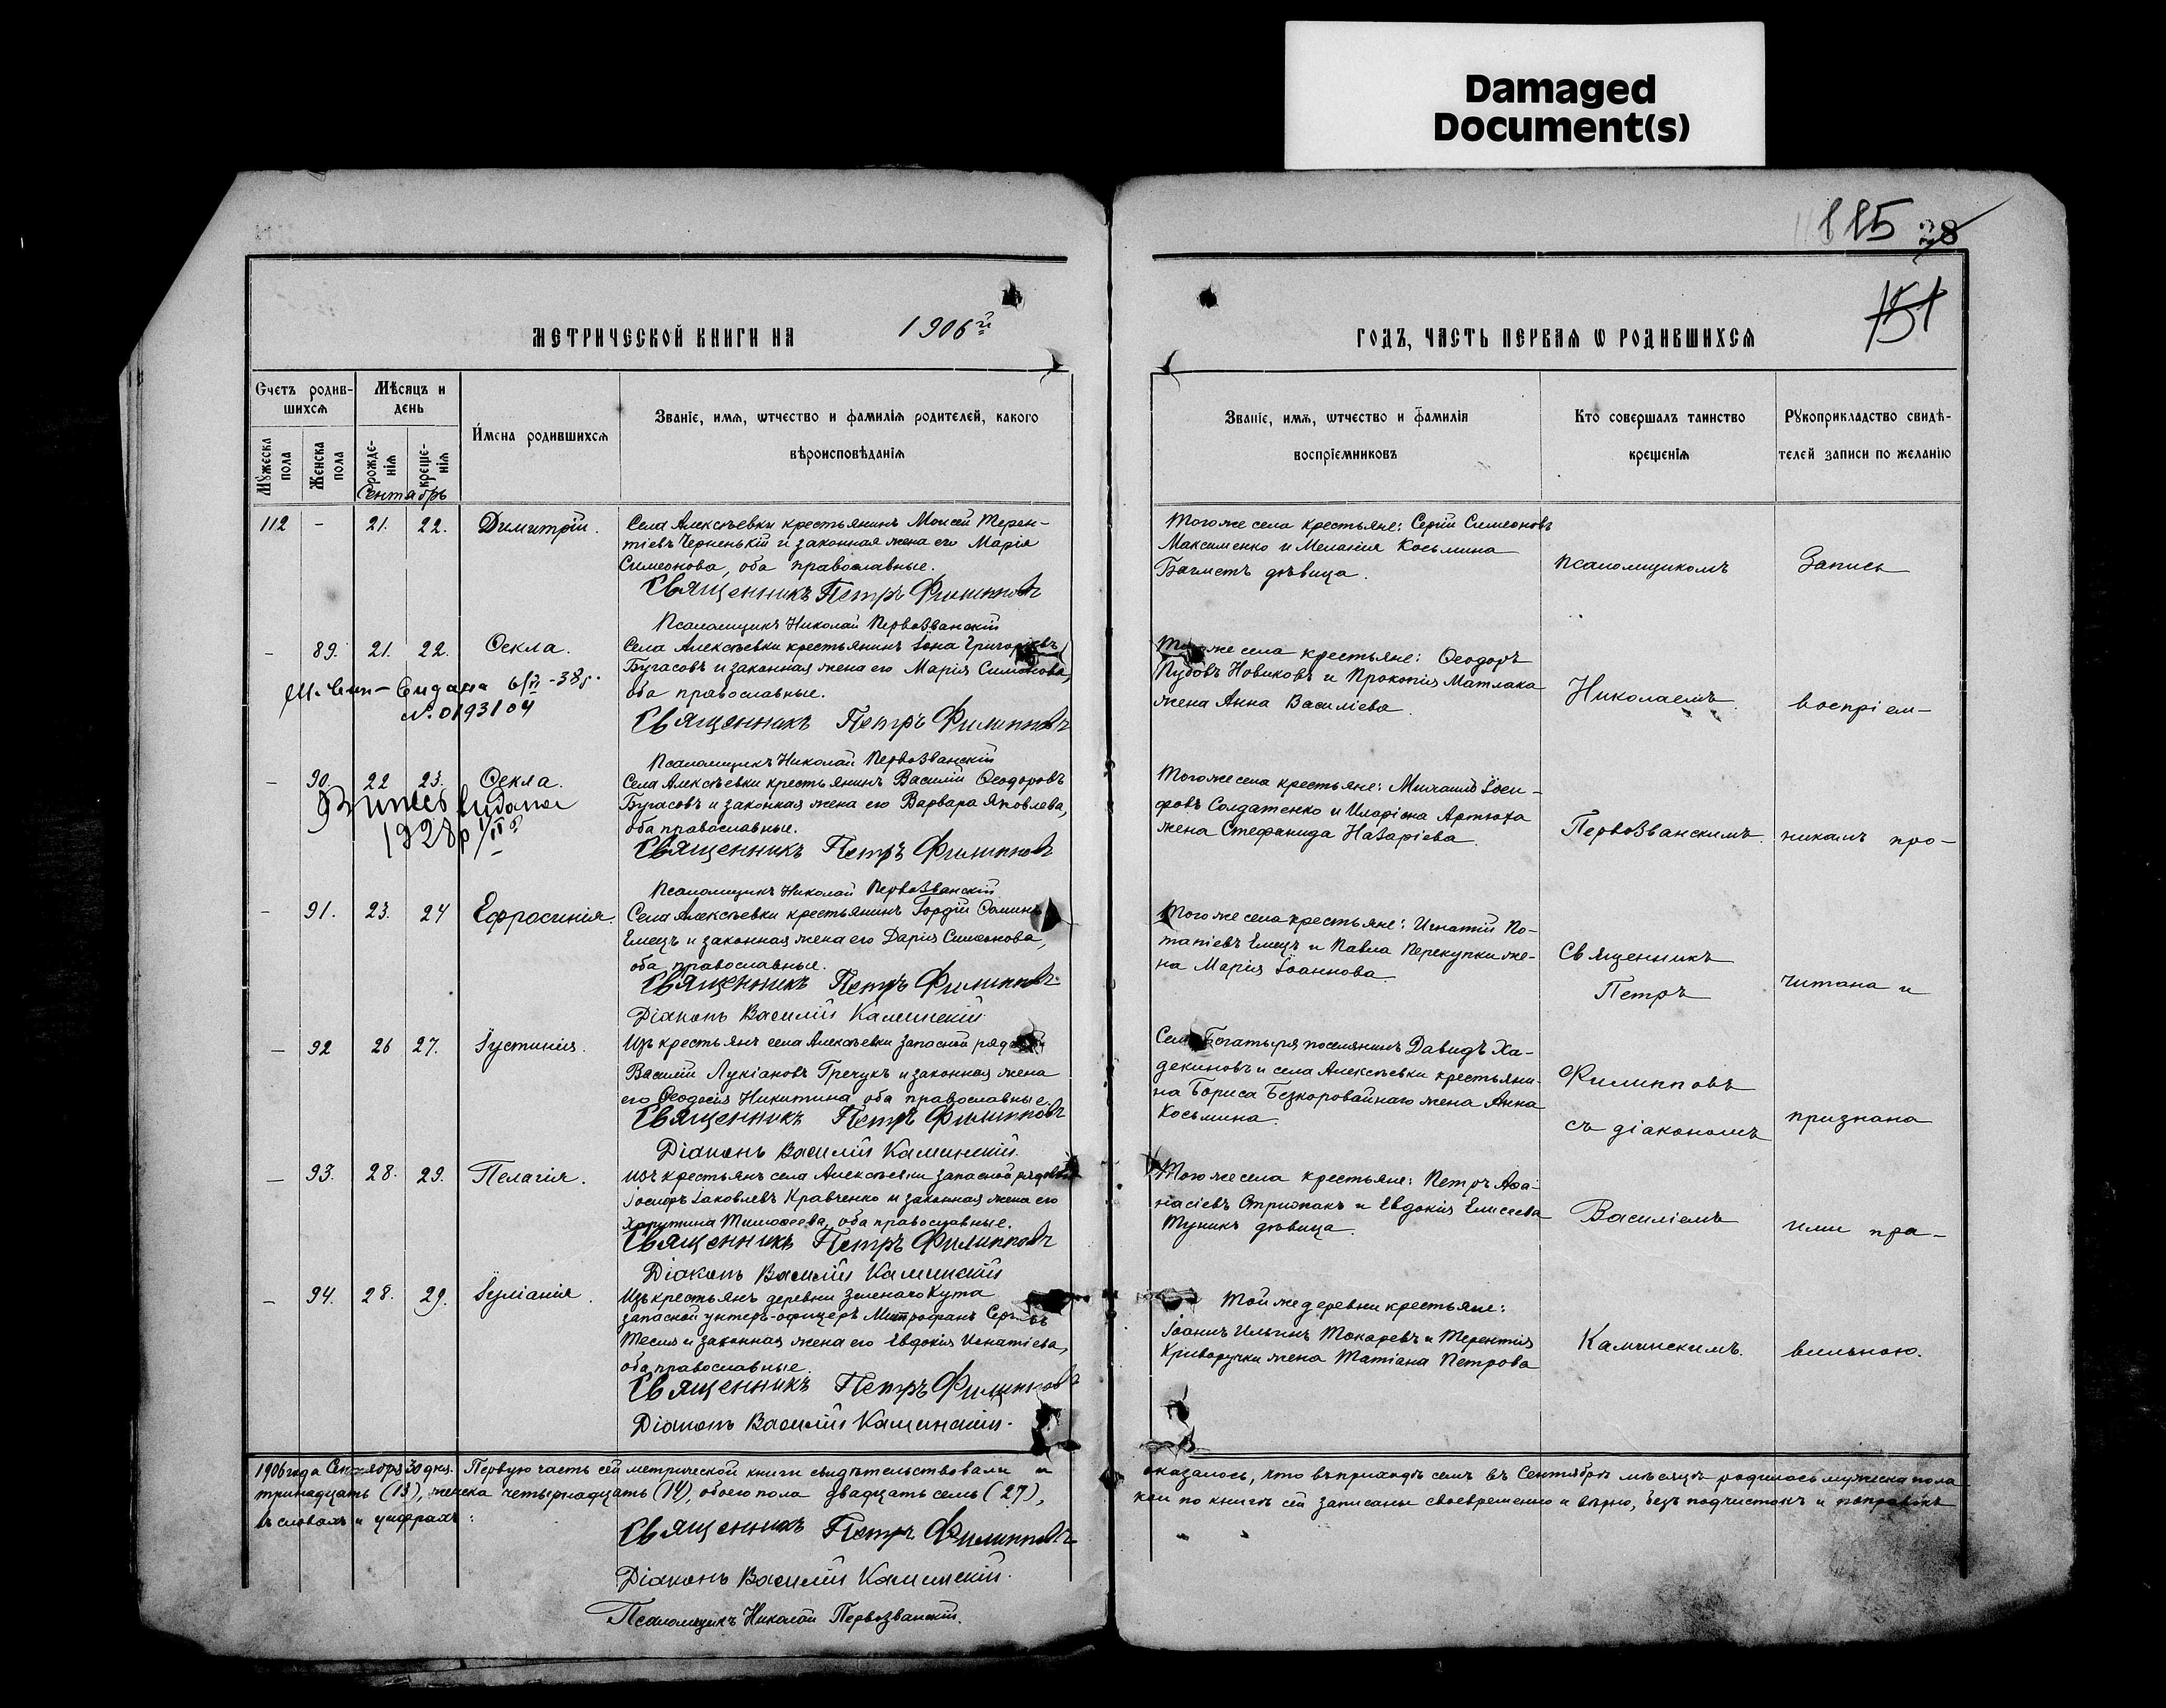 Damaged
Document(s)
115 28
151
МЕТРИЧЕСКОЙ КНИГИ НА 1906й
ГОДЪ, ЧАСТЬ ПЕРВАЯ Ѡ РОДИВШИХСЯ
Счетъ родив-
шихся
Мужеска пола
Женска пола
Мѣсяцъ и
день
рожде-
нія
креще-
нія
Сентябрь
Имена родившихся
Званіе, имя, ѡтчество и фамилія родителей, какого
вѣроисповѣданія
Званіе, имя, ѡтчество и фамилія
воспріемниковъ
Кто совершалъ таинство
крещенія
Рукоприкладство свидѣ-
телей записи по желанію
112 - 21. 22. Димитрій.
Села Алексѣевки крестьянинъ Моисей Терен-
тіевъ Черненькій и законная жена его Марія
Симеонова, оба православные.
Священникъ Петръ Филипповъ
Псаломщикъ Николай Первозванскій
Тогоже села крестьяне: Сергій Симеоновъ
Максименко и Меланія Косьмина
Багметъ дѣвица.
псаломщикомъ
Запись
- 89. 21. 22. Ѳекла.
Села Алексѣевки крестьянинъ Іона Григоріевъ
Бугасовъ и законная жена его Марія Симеонова,
оба православные.
Священникъ Петръ Филипповъ
Псаломщикъ Николай Первозванскій
№ 0193104
Тогоже села крестьяне: Ѳеодоръ
Новиковъ и Прокопія Матлака
жена Анна Василіева.
Николаемъ
воспріем-
- 90. 22 23. Ѳекла.
Витяг видана
1928р
Села Алексѣевки крестьянинъ Василій Ѳеодоровъ
Бугасовъ и законная жена его Варвара Яковлева,
оба православные.
Священникъ Петръ Филипповъ
Псаломщикъ Николай Первозванскій
Тогоже села крестьяне: Михаилъ Іоси-
фовъ Солдатенко и Иларіона Артюха
жена Стефанида Назаріева.
Первозванскимъ.
никамъ про-
- 91. 23. 24 Ефросинія.
Села Алексѣевки крестьянинъ Гордій Ѳоминъ
Емецъ и законная жена его Дарія Симеонова,
оба православные.
Священникъ Петръ Филипповъ.
Діаконъ Василій Каминскій
Тогоже села крестьяне: Игнатій По-
тапіевъ Емецъ и Павла Перекупки же-
на Марія Іоаннова.
Священникъ
Петръ
читана и
- 92 26 27. Іустинія.
Изъ крестьянъ села Алексѣевки запасной рядовой
Василій Лукіановъ Гречукъ и законная жена
его Ѳеодосія Никитина, оба православные.
Священникъ Петръ Филипповъ
Діаконъ Василій Каминскій.
Села Богатыря поселянинъ Давидъ Ха-
декиновъ и села Алексѣевки крестьяни-
на Бориса Безкоровайнаго жена Анна
Косьмина.
Филипповъ
съ діакономъ
признана
- 93. 28. 29. Пелагія.
Изъ крестьянъ села Алексѣевки запасной рядовой
Іосифъ Іаковлевъ Кравченко и законная жена его
Харитина Тимоѳеева, оба православные.
Священникъ Петръ Филипповъ
Діаконъ Василій Каминскій
Тогоже села крестьяне: Петръ Аѳа-
насіевъ Стрижакъ и Евдокія Елисеева
Туникъ дѣвица.
Василіемъ
ими пра-
- 94. 28. 29. Іуліанія.
Изъ крестьянъ деревни Зеленаго Кута
запасной унтеръ-офицеръ Митрофанъ Сергѣевъ
Тесля и законная жена его Евдокія Игнатіева,
оба православные.
Священникъ Петръ Филипповъ
Діаконъ Василій Каминскій.
Той же деревни крестьяне:
Іоаннъ Ильинъ Токаревъ и Терентія
Криворучки жена Татіана Петрова
Каминскимъ.
вильною.
1906 года Сентября 30 дня. Первую часть сей метрической книги свидѣтельствовали и оказалось, что въ приходѣ семъ въ Сентябрѣ мѣсяцѣ родилось мужеска пола
тринадцать (13), женска четырнадцать (14), обоего пола двадцать семь (27), кои по книгѣ сей записаны своевременно и вѣрно, безъ подчистокъ и поправокъ
въ словахъ и цифрахъ:
Священникъ Петръ Филипповъ
Діаконъ Василій Каминскій.
Псаломщикъ Николай Первозванскій.